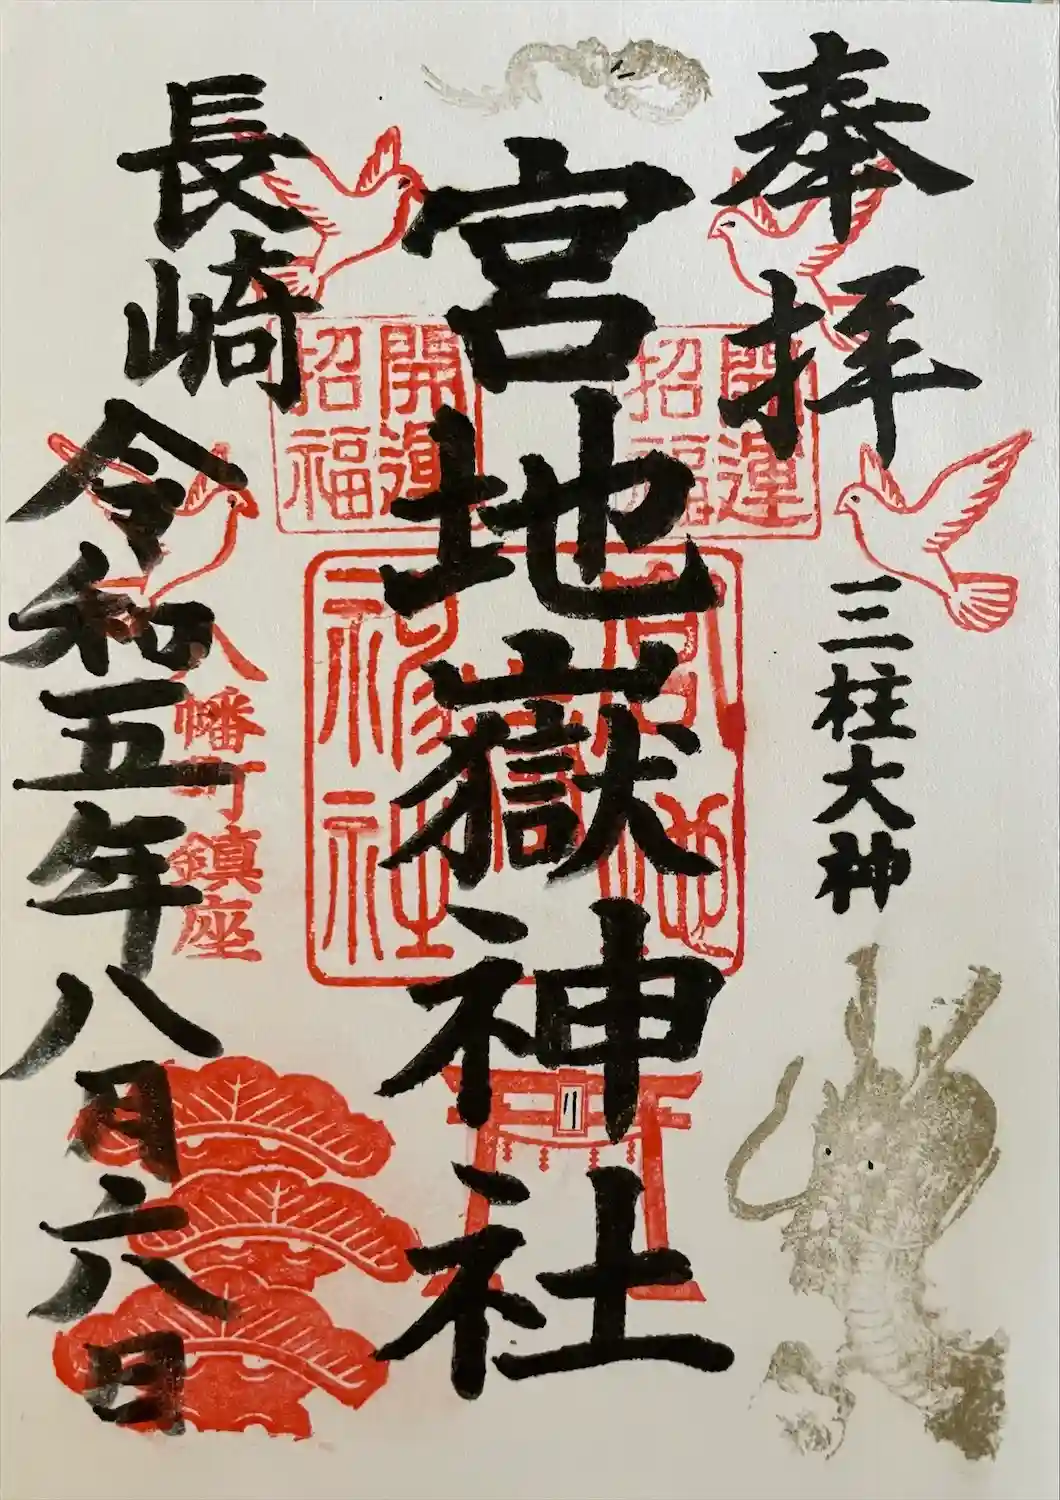 奉拝
三柱大神
開運
招福
開運
招福
宮地嶽神社
宮地
神社
長崎
八幡町鎮座
令和五年八月六日